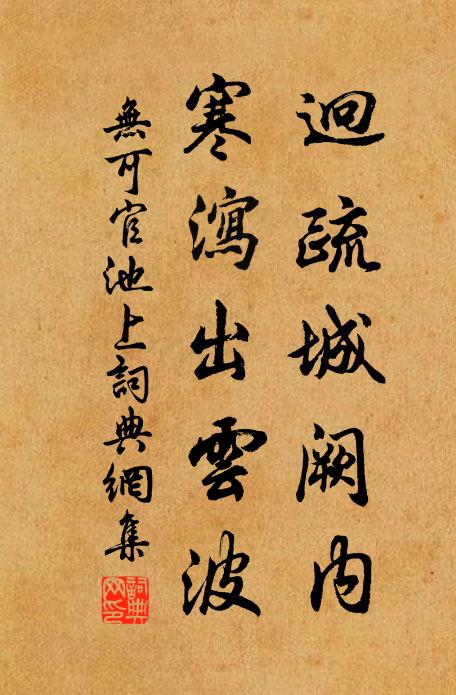 迴疏城闕内
寒瀉出雲波
無可宮池上詞典網集
詞典網印